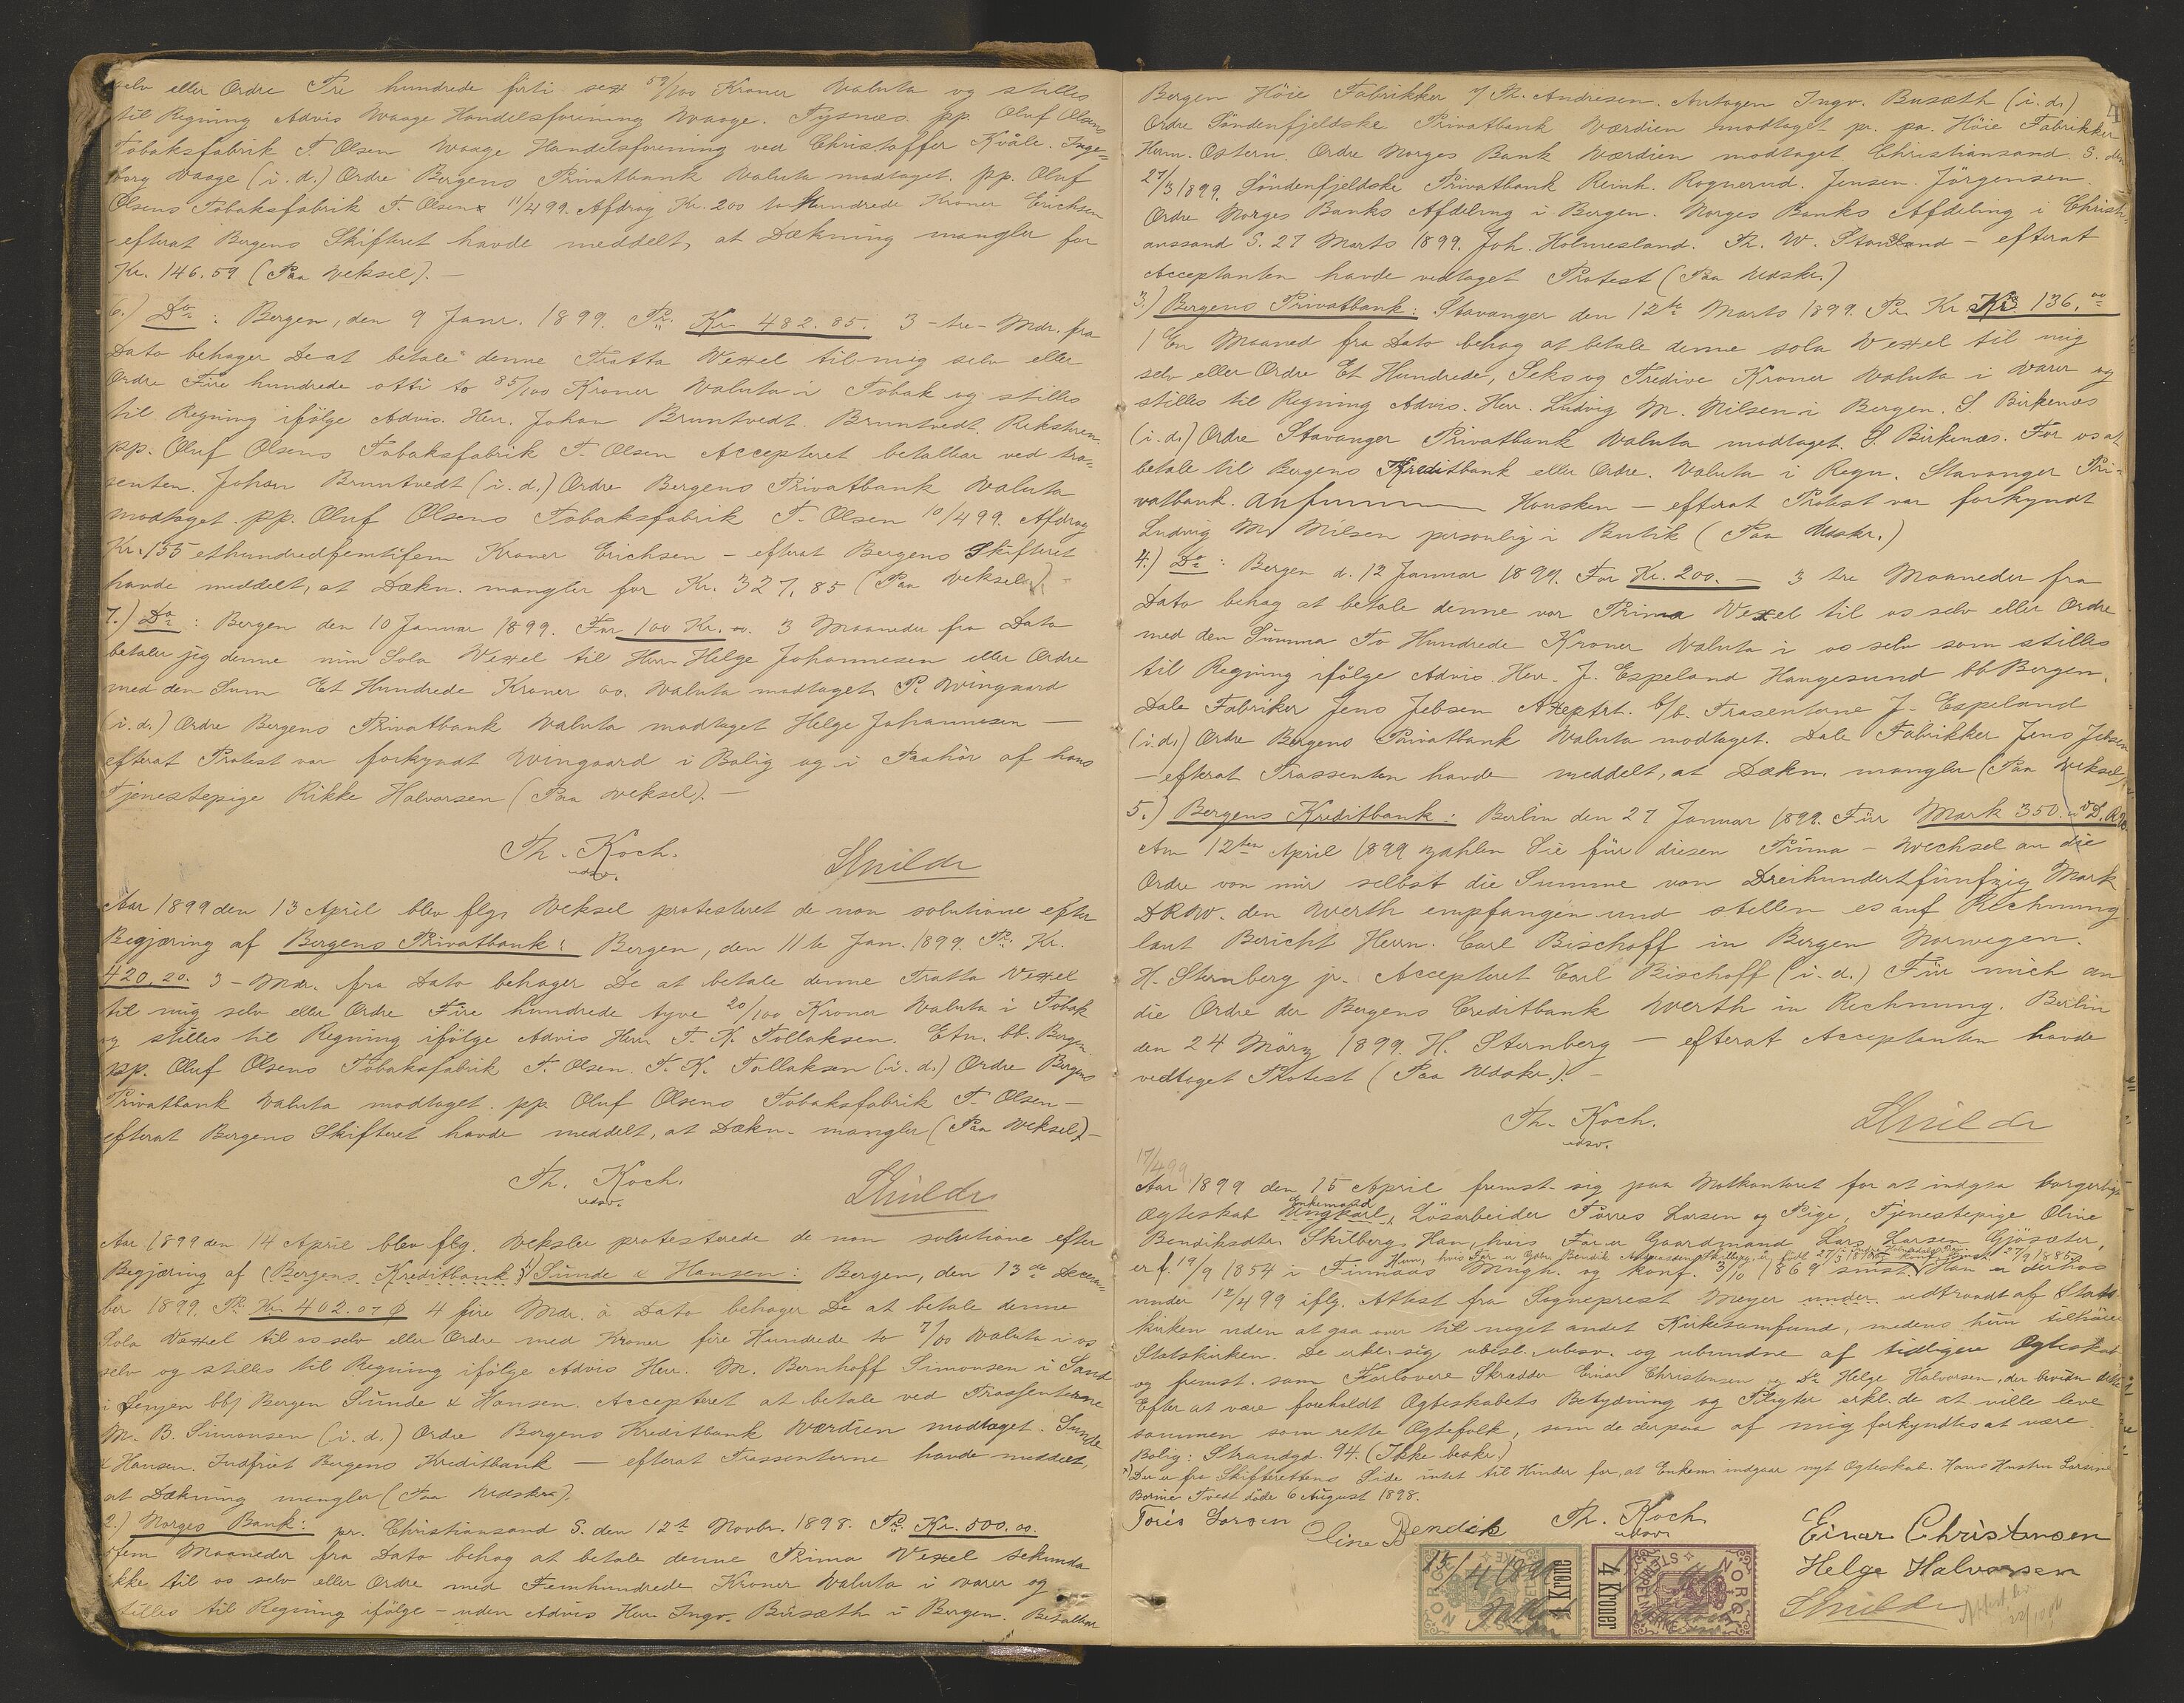 selv eller Ordre Tre hundrede firti sex 59/100 Kroner Valuta og stilles
til Regning Advis Waage Handelsforening Waage. Tysnæs. pp. Oluf Olsens
Tobaksfabrik T. Olsen Waage Handelsforening ved Christoffer Kvåle. Inge=
borg Waage (i.d.) Ordre Bergens Privatbank Valuta modtaget. pp. Oluf
Olsens Tobaksfabrik T. Olsen 11/4 99. Afdrag Kr. 200 to Hundrede Kroner Erichsen
- efterat Bergens Skifteret havde meddelt, at Dækning mangler for
Kr. 146.59 (Paa Veksel). -
6.) Do: Bergen, den 9 Janr. 1899. Pr. Kr 482.85. 3 - tre - Mdr. fra
Dato behager De at betale denne Tratta Vexel til mig selv eller
Ordre Fire hundrede otti to 85/100 Kroner Valuta i Tobak og stilles
til Regning ifölge Advis. Herr. Johan Bruntvedt. Bruntvedt. Reksteren.
pp. Oluf Olsens Tobaksfabrik T. Olsen Accepteret betalbar ved tra=
senten. Johan Bruntvedt (i.d.) Ordre Bergens Privatbank Valuta
modtaget. pp. Oluf Olsens Tobaksfabrik T. Olsen 10/4 99. Afdrag
Kr. 155 ethundredfemtifem Kroner Erichsen - efterat Bergens Skifteret
havde meddelt, at Dækn. mangler for Kr. 327,85 (Paa Veksel). -
7.) Do: Bergen den 10 Januar 1899. For 100 Kr. oo. 3 Maaneder fra Dato
betaler jeg denne min Sola Vexel til Herr Helge Johannesen eller Ordre
med den Sum Et Hundrede Kroner oo. Valuta modtaget P. Wingaard
(i.d.) Ordre Bergens Privatbank Valuta modtaget Helge Johannesen -
efterat Protest var forkyndt Wingaard i Bolig og i Paahör af hans
Tjenestepige Rikke Halvorsen (Paa Veksel). -
Th. Koch.
Aar 1899 den 13 April blev flg. Veksel protesteret de non solutione efter
Begjæring af Bergens Privatbank: Bergen, den 11te Jan. 1899. Pr. Kr.
420.20. 3 - Mdr. fra Dato behager De at betale denne Tratta Vexel
til mig selv eller Ordre Fire hundrede tyve 20/100 Kroner Valuta i Tobak
og stilles til Regning ifölge Advis Herr T. K. Tollaksen. Etn. bb. Bergen.
pp. Oluf Olsens Tobaksfabrik T. Olsen. T. K. Tollaksen (i.d.) Ordre Bergens
Privatbank Valuta modtaget. pp. Oluf Olsens Tobaksfabrik T. Olsen -
efterat Bergens Skifteret havde meddelt, at Dækn. mangler (Paa Veksel). -
Th. Koch.
Aar 1899 den 14 April blev flg. Veksler protesterede de non solutione efter
Begjæring af (Bergens Kreditbank) Sunde & Hansen: Bergen, den 13de Decem=
ber 1899. Pr. Kr. 402.07 Ø 4 fire Mdr. à Dato behager De at betale denne
Sola Vexel til os selv eller Ordre med Kroner fire Hundrede to 7/00 Valuta i os
selv og stilles til Regning ifölge Advis Herr. M. Bernhoff Simonsen i Sand
i Senjen bb/ Bergen Sunde & Hansen. Accepteret at betale ved Trassenterne
M. B. Simonsen (i.d.) Ordre Bergens Kreditbank Værdien modtaget. Sunde
& Hansen. Indfriet Bergens Kreditbank - efterat Trassenterne havde meddelt,
at Dækning mangler (Paa Udskr.).
2.) Norges Bank: pr. Christiansand S. den 12te Novbr. 1898. Pr. Kr. 500.00.
5 fem Maaneder fra Dato behag at betale denne Prima Vexel sekunda
ikke til os selv eller Ordre med Femhundrede Kroner Valuta i Varer og
stilles til Regning ifölge - uden Advis Herr Ingv. Busæth i Bergen. Betalbar
Bergen Höie Fabrikker / Th. Andresen. Antagen Ingv. Busæth (i.d.)
Ordre Söndenfjeldske Privatbank Værdien modtaget pr. pa. Höie Fabrikker
Herm. Ostern. Ordre Norges Bank Værdien modtaget Christiansand S. den
27/3 1899. Söndenfjeldske Privatbank Reinh. Rognerud. Jensen. Jörgensen.
Ordre Norges Banks Afdeling i Bergen. Norges Banks Afdeling i Christi=
anssand S. 27 Marts 1899. Joh. Holmesland. Th. W. Stousland - efterat
Acceptanten havde vedtaget Protest (Paa Udskr.)
3.) Bergens Privatbank: Stavanger den 12te Marts 1899. Pr. Kr Kr. 136.oo
1 En Maaned fra Dato behag at betale denne sola Vexel til mig
selv eller Ordre Et Hundrede, Seks og Tredive Kroner Valuta i Varer og
stilles til Regning Advis. Herr. Ludvig M. Nilsen i Bergen. S. Birkenæs
(i.d.) Ordre Stavanger Privatbank Valuta modtaget. S. Birkenæs. For os at
betale til Bergens Kreditbank eller Ordre. Valuta i Regn. Stavanger Pri=
vatbank. Hausken - efterat Protest var forkyndt
Ludvig M. Nilsen personlig i Butik (Paa Udskr.)
4.) Do: Bergen d. 12 Januar 1899. For Kr. 200. - 3 tre Maaneder fra
Dato behag at betale denne vor Prima Vexel til os selv eller Ordre
med den Summa To Hundrede Kroner Valuta i os selv som stilles
til Regning ifölge Advis. Herr. J. Espeland Haugesund bb Bergen.
Dale Fabriker Jens Jebsen Axeptrt. b/b. Trasenterne J. Espeland
(i.d.) Ordre Bergens Privatbank Valuta modtaget. Dale Fabrikker Jens Jebsen
- efterat Trassenten havde meddelt, at Dækn. mangler (Paa Veksel)
5.) Bergens Kreditbank: Berlin den 27 Januar 1899. Für Mark 350. D.R.W.
Am 12ten April 1899 zahlen Sie für diesen Prima - Wechsel an die
Ordre von mir selbst die Summe von Dreihundertfünfzig Mark
DRW. den Werth empfangen und stellen es auf Rechnung
laut Bericht Herrn. Carl Bischoff in Bergen Norwegen.
H. Sternberg jr. Accepteret Carl Bischoff (i.d.) Für mich an
die Ordre der Bergens Creditbank Werth in Rechnung. Berlin
den 24 März 1899. H. Sternberg - efterat Acceptanten havde
vedtaget Protest (Paa Udskr.). -
Th. Koch.
17/4 99
Aar 1899 den 15 April fremst. sig paa Notkontoret for at indgaa borgerligt
Enkemand
Ægteskab Ungkarl, Lösarbeider Torres Larsen og Pige, Tjenestepige Oline
Bendiksdtr. Skilberg. Han, hvis Far er Gaardmand Lars Larsen Gjösæter,
er f. 19/9 1854 i Finnaas og konf. 3/10 1869 Han er derhos
under 12/4 99 iflg. Attest fra Sogneprest Meyer under udtraadt af Stats
kirken uden at gaa over til noget andet Kirkesamfund, medens hun tilhörer
Statskirken. De erkl. sig ubesl. ubesv. og ubundne af tidligere Ægteskab
og fremst. som Forlovere Skrædder Einar Christensen og Do Helge Halvorsen, der bevidn. dette
Efter at være foreholdt Ægteskabets Betydning og Pligter erkl. de at ville leve
sammen som rette Ægtefolk, som de derpaa af mig forkyndtes at være.
Bolig: Strandgd. 94. (Ikke beskr.)
x) Der er fra Skifterettens Side intet til Hinder for, at Enkem. indgaar nyt Ægteskab. Hans Hustru Larsine
Borine Tvedt döde 6 August 1898.
Torés Larsen
Oline Bendik
Th. Koch
Einar Christensen
Helge Halvorsen
15/4 1899
NORGE
4 Kroner
NORGE
STEMPELMÆRKE